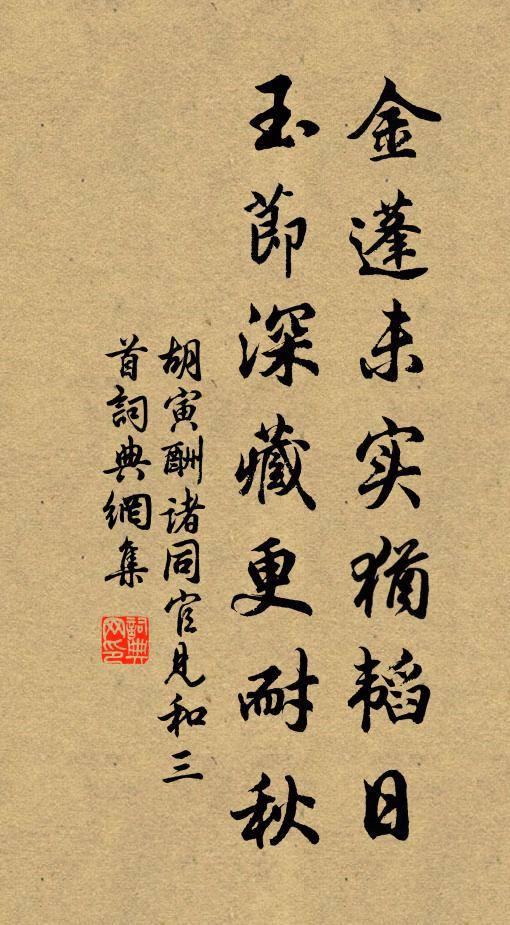 金蓬未实犹韬日
玉節深藏更耐秋
胡寅酬诸同官見和三
首詞典網集
詞典
网印